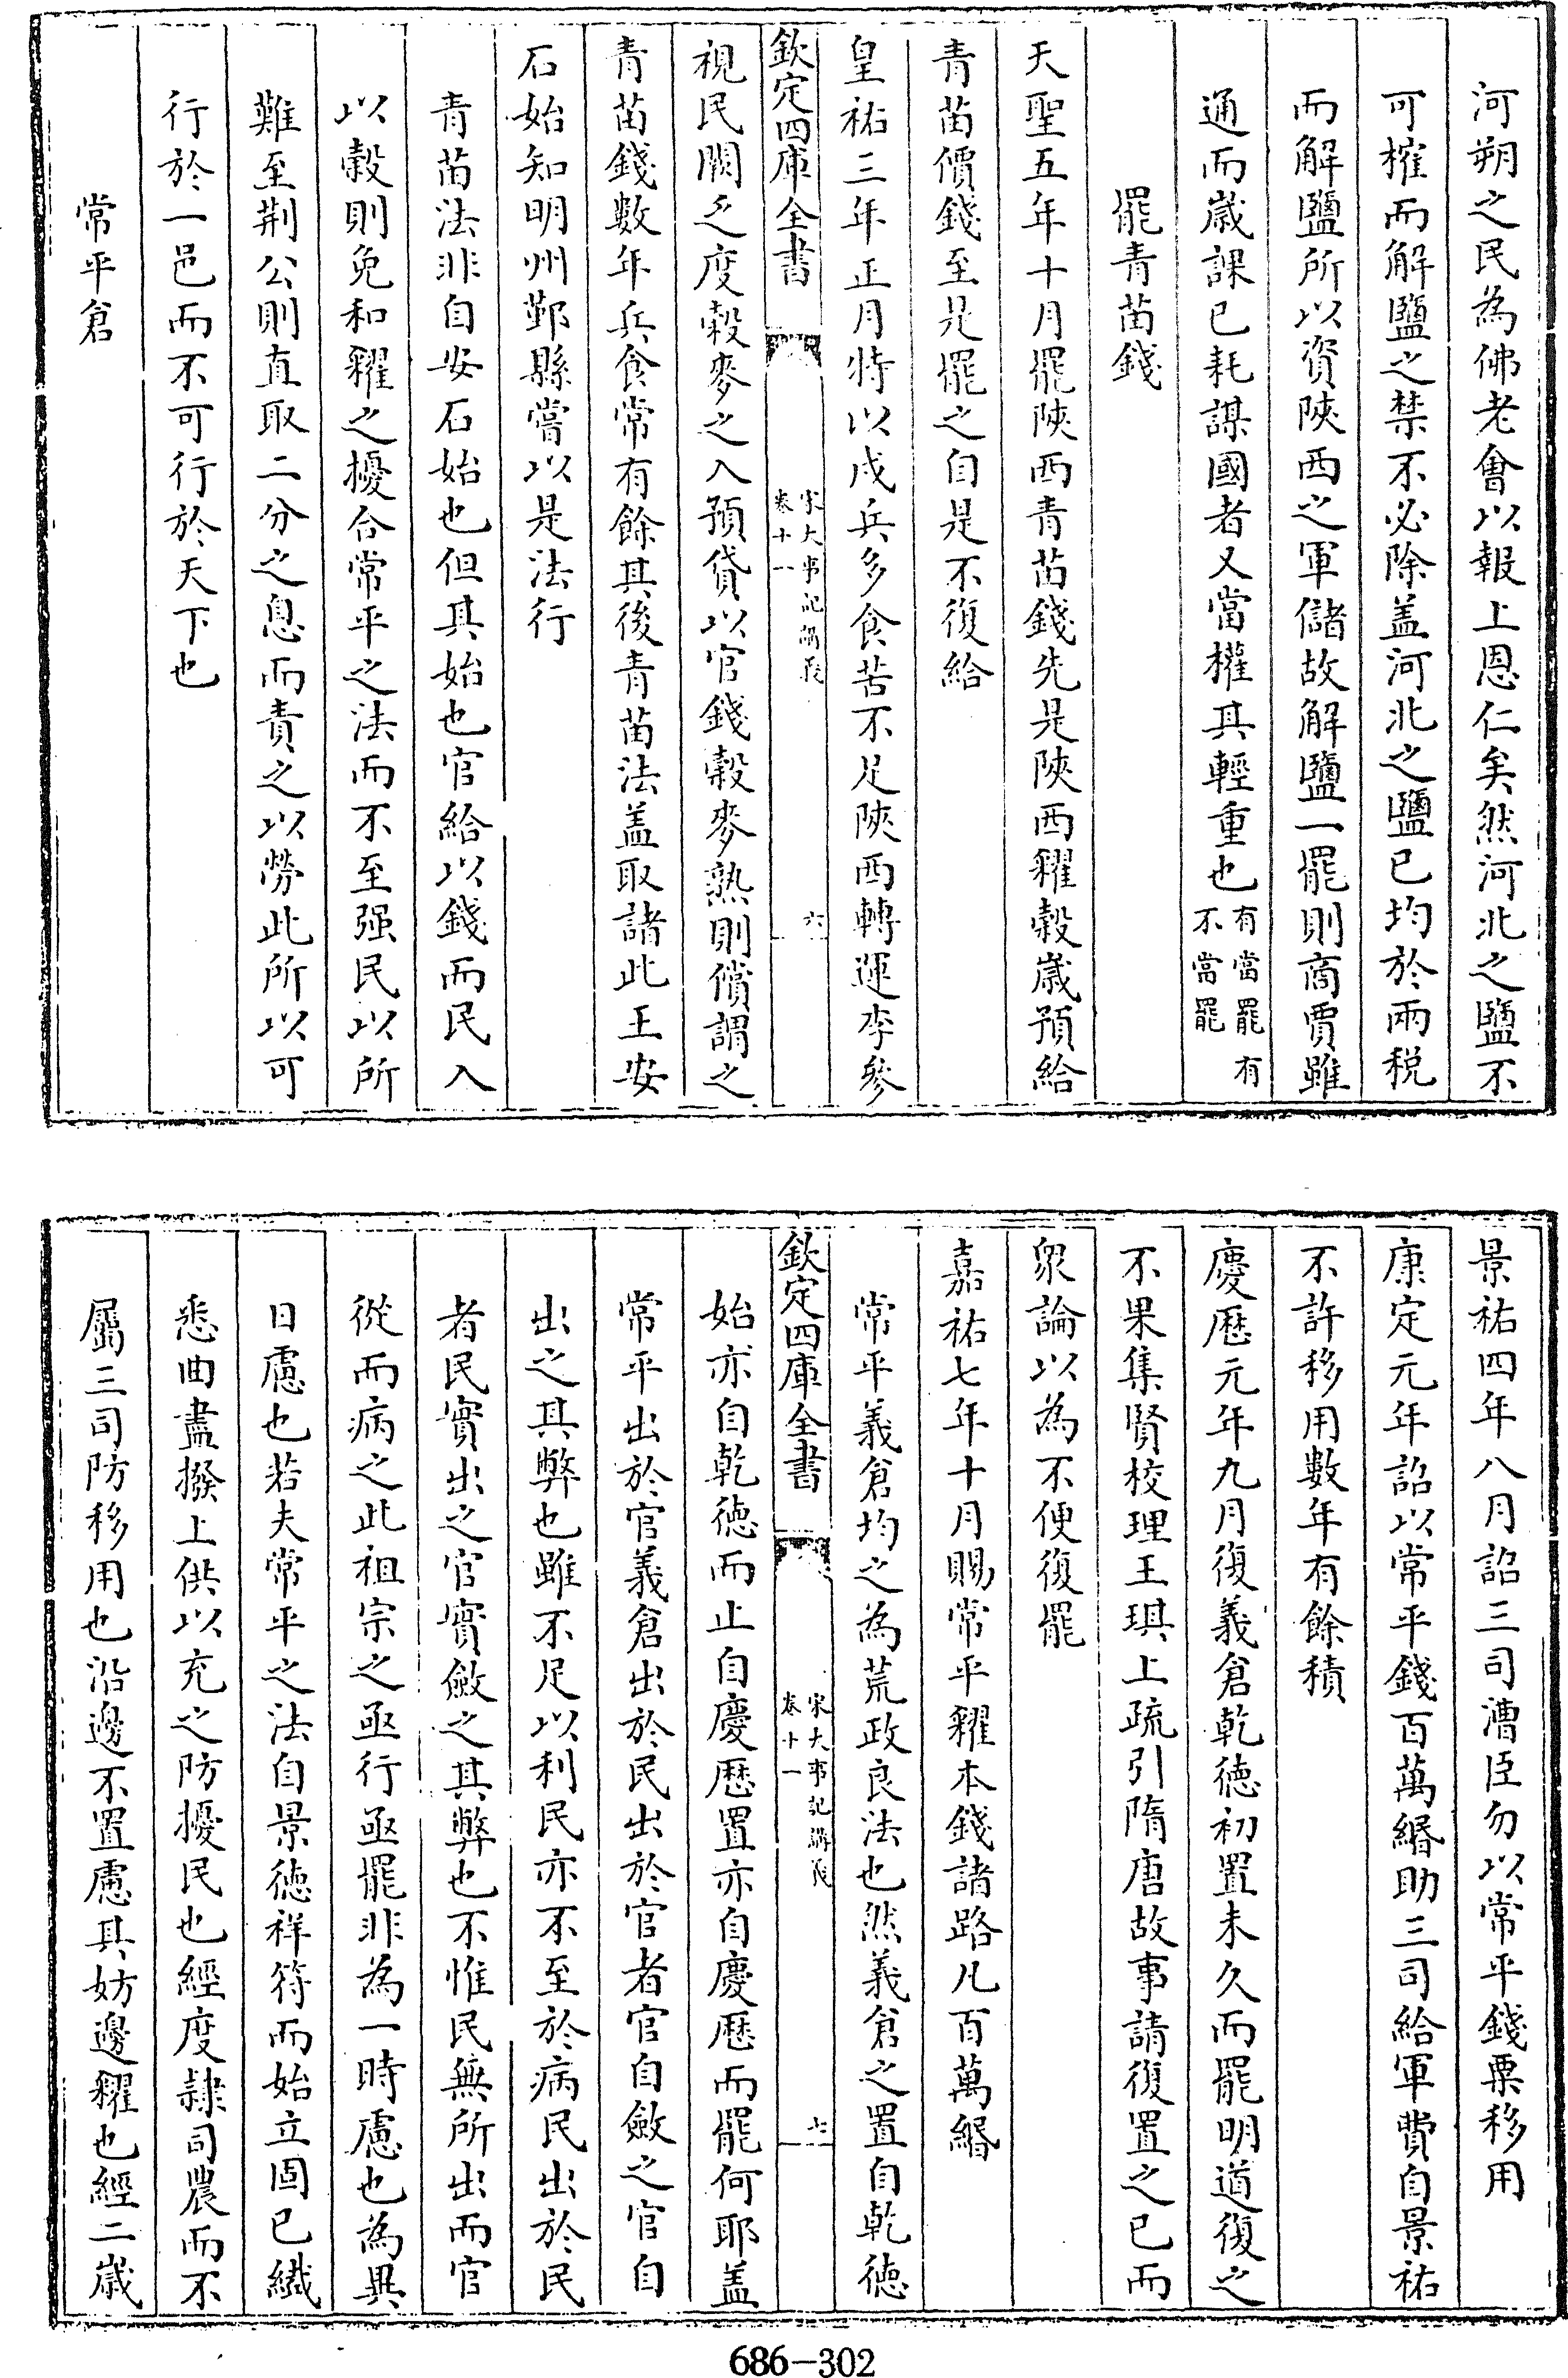 河朔之民為佛老會以報上恩仁矣然河北之鹽不
可榷而解鹽之禁不必除盖河北之鹽已均於兩税
而解鹽所以資陜西之軍儲故解鹽一罷則商賈雖
通而歲課已耗謀國者又當權其輕重也有當罷有不當罷
罷青苗錢
天聖五年十月罷陜西青苗錢先是陜西糴榖歲預給
青苗價錢至是罷之自是不復給
皇祐三年正月特以戍兵多食苦不足陜西轉運李參
欽定四庫全書
宋大事記講義
卷十一
六
視民闕乏度榖麥之入預貸以官錢榖麥熟則償謂之
青苗錢數年兵食常有餘其後青苗法盖取諸此王安
石始知明州鄞縣嘗以是法行
青苗法非自安石始也但其始也官給以錢而民入
以榖則免和糴之擾合常平之法而不至强民以所
難至荆公則直取二分之息而責之以勞此所以可
行於一邑而不可行於天下也
常平倉
景祐四年八月詔三司漕臣勿以常平錢粟移用
康定元年詔以常平錢百萬緡助三司給軍費自景祐
不許移用數年有餘積
慶厯元年九月復義倉乾徳初置未久而罷明道復之
不果集賢校理王琪上疏引隋唐故事請復置之已而
衆論以為不便復罷
嘉祐七年十月賜常平糴本錢諸路凡百萬緡
常平義倉均之為荒政良法也然義倉之置自乾徳
欽定四庫全書
宋大事記講義
卷十一
七
始亦自乾徳而止自慶厯置亦自慶厯而罷何耶盖
常平出於官義倉出於民出於官者官自斂之官自
出之其弊也雖不足以利民亦不至於病民出於民
者民實出之官實斂之其弊也不惟民無所出而官
從而病之此祖宗之亟行亟罷非為一時慮也為異
日慮也若夫常平之法自景徳祥符而始立固已纎
悉曲盡撥上供以充之防擾民也經度隷司農而不
屬三司防移用也沿邊不置慮其妨邊糴也經二歲
686-302